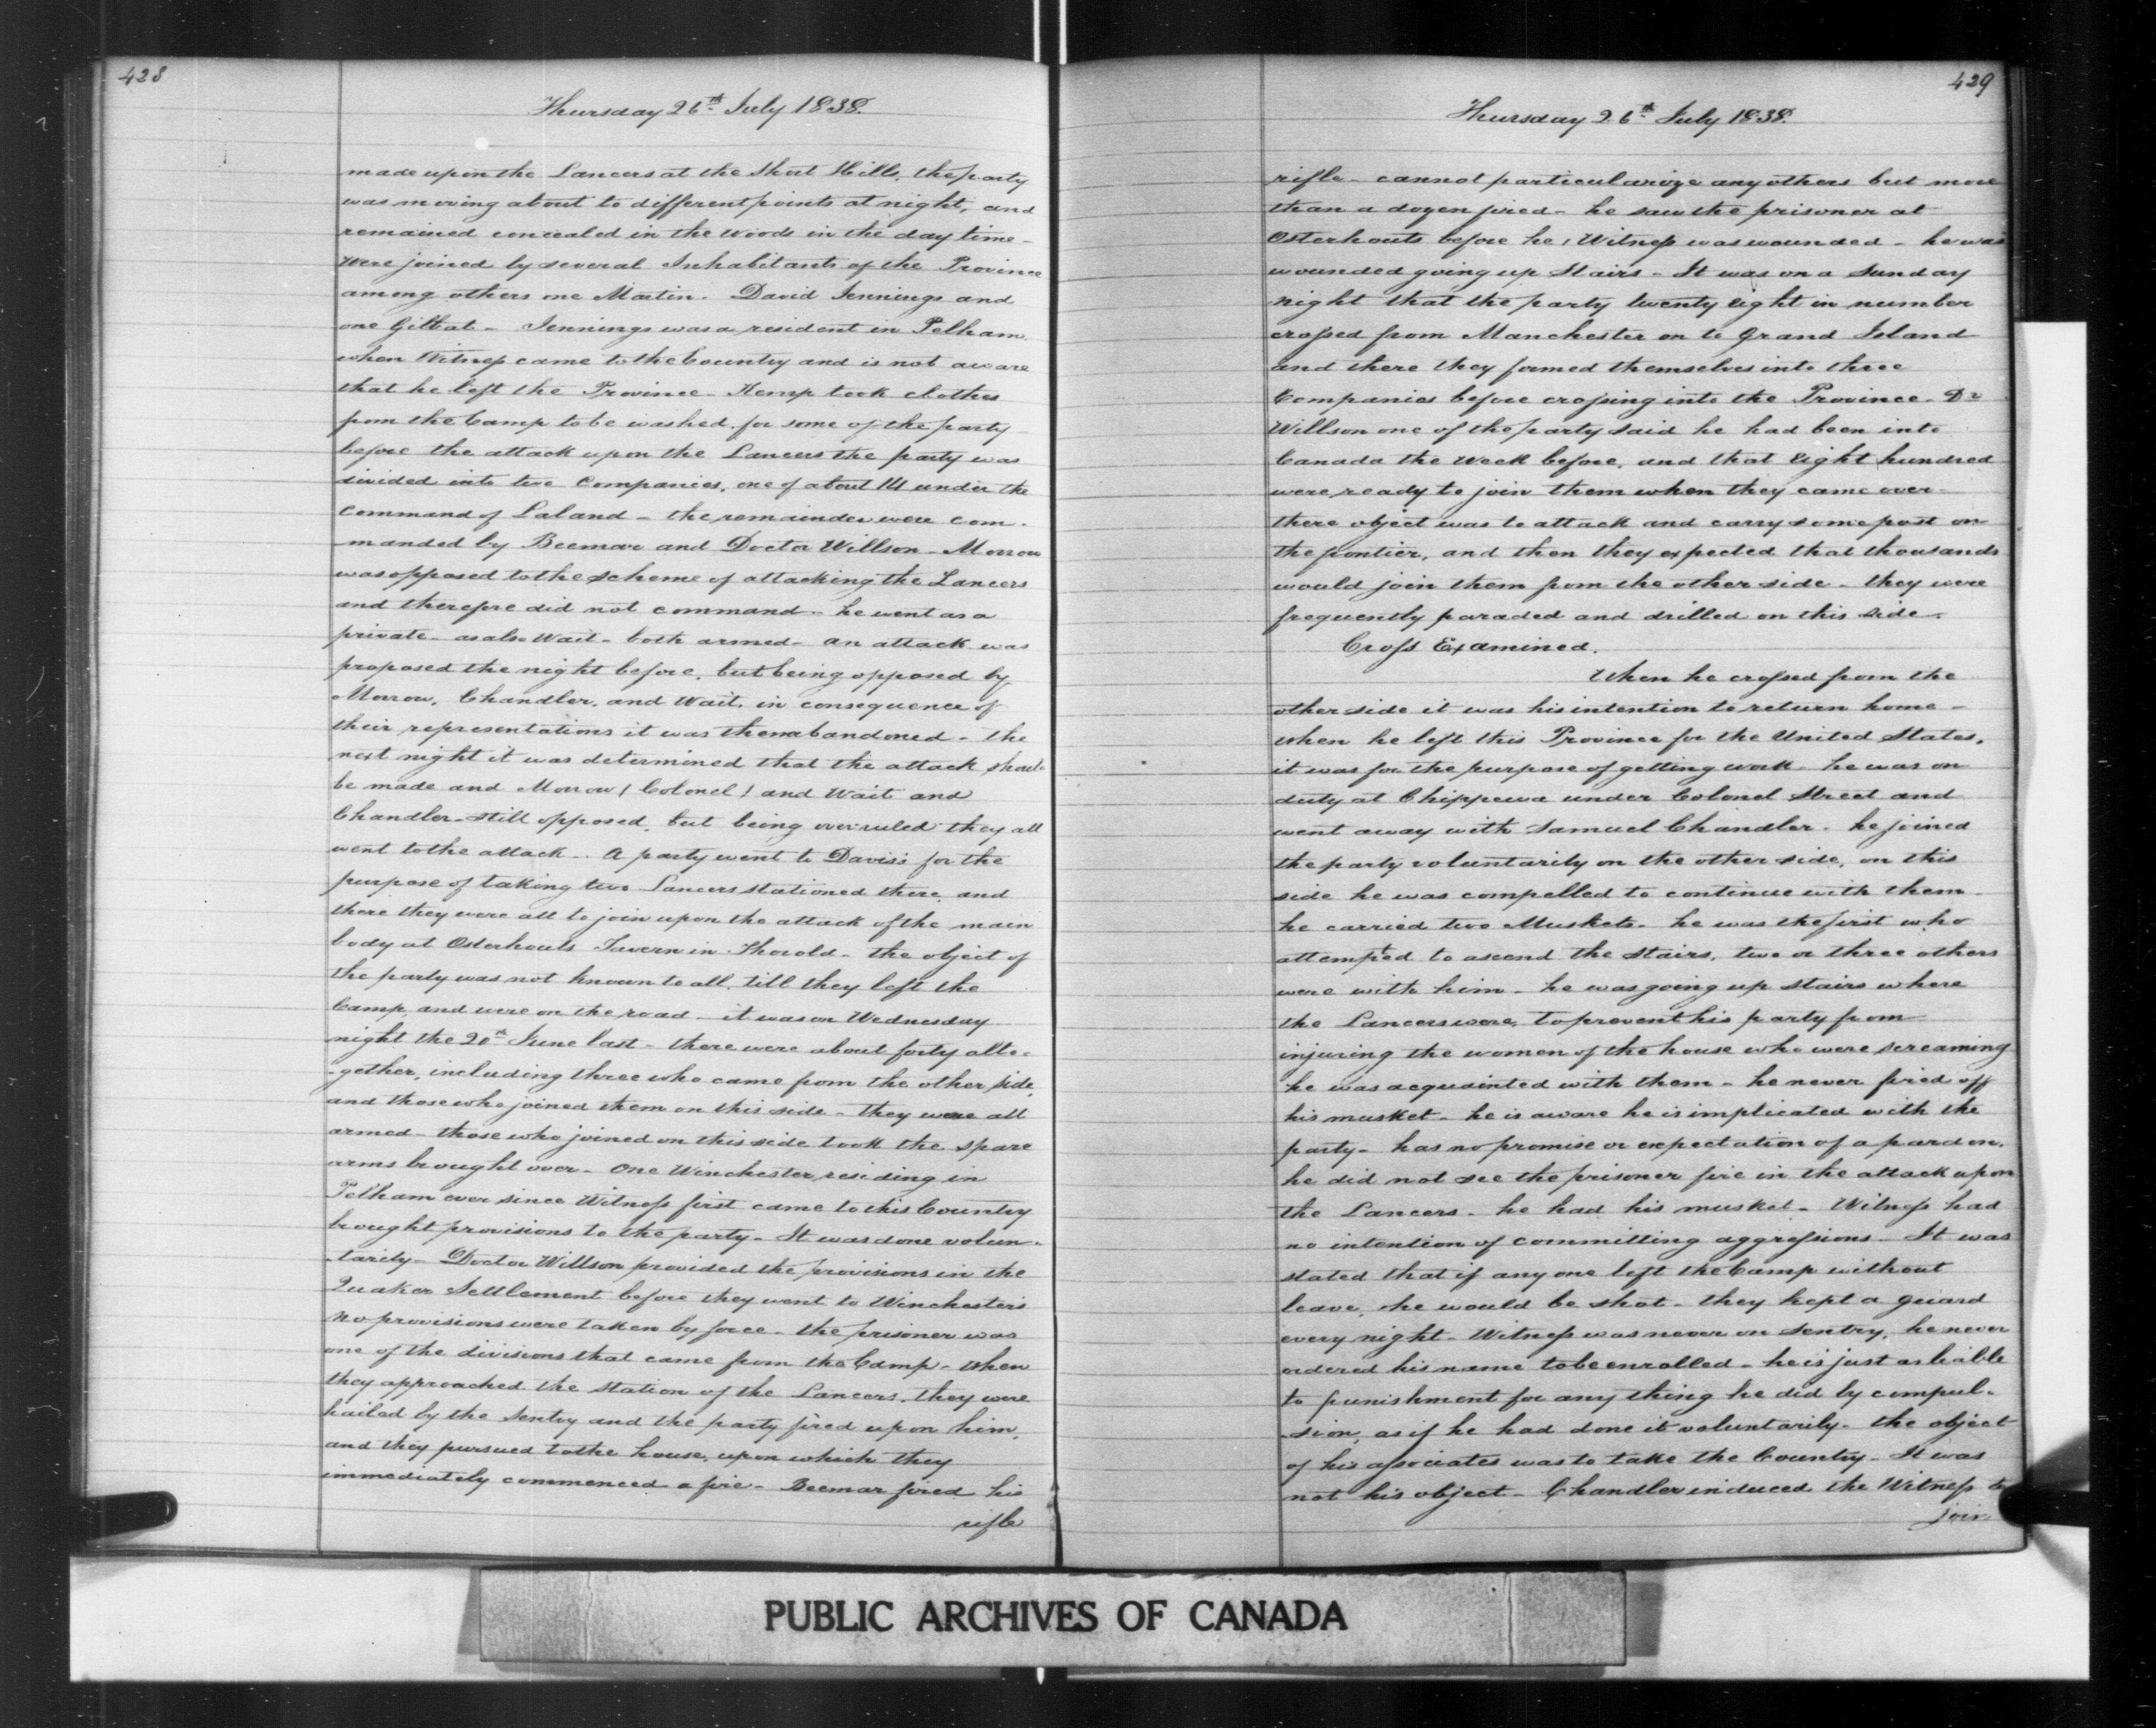 428
Thursday 26th July 1838.
made upon the Lancers at the Short Hills, the party
was moving about to different points at night, and
remained concealed in the woods in the day time -
were joined by several Inhabitants of the Province
among others one Martin. David Jennings and
one - Jennings was a resident in Pelham
when Witness came to the Country and is not aware
that he left the Province - Kemp took clothes
from the Camp to be washed for some of the party
before the attack upon the Lancers the party was
divided into two Companies, one of about 14 under the
command of Laland - the remainder were com-
-manded by Beemar and Doctor Willson - Morrow
was opposed to the scheme of attacking the Lancers
and therefore did not command - he went as a
private - as also Wait - both armed - an attack was
proposed the night before, but being opposed by
Morrow, Chandler, and Wait, in consequence of
their representations it was then abandoned - the
next night it was determined that the attack should
be made and Morrow (Colonel) and Wait and
Chandler - still opposed, but being overruled they all
went to the attack - A party went to Davis's for the
purpose of taking two Lancers stationed there, and
there they were all to join upon the attack of the main
body at Osterhouts Tavern in Thorold - the object of
the party was not known to all, till they left the
Camp, and were on the road - it was on Wednesday
night the 20th June last - there were about forty alto-
-gether, including three who came from the other side,
and those who joined them on this side - they were all
armed - those who joined on this side took the spare
arms brought over - One Winchester residing in
Pelham ever since Witness first came to this Country
brought provisions to the party - It was done volun-
-tarily - Doctor Willson provided the provisions in the
Quaker Settlement before they went to Winchesters
no provisions were taken by force - the prisoner was
one of the divisions that came from the Camp - when
they approached the station of the Lancers, they were
hailed by the sentry and the party fired upon him,
and they pursued to the house, upon which they
immediately commenced a fire - Beemar fired his
rifle
429
Thursday 26th July 1838.
rifle - cannot particularize any others but more
than a dozen fired - he saw the prisoner at
Osterhouts before he, Witness was wounded - he was
wounded going up Stairs - It was on a Sunday
night that the party twenty eight in number
crossed from Manchester on to Grand Island
and there they formed themselves into three
Companies before crossing into the Province - Dr
Willson one of the party said he had been into
Canada the week before, and that eight hundred
were ready to join them when they came over -
there object was to attack and carry some post on
the frontier, and then they expected that thousands
would join them from the other side - they were
frequently paraded and drilled on this side -
Cross Examined.
When he crossed from the
other side it was his intention to return home -
when he left this Province for the United States,
it was for the purpose of getting work - he was on
duty at Chippewa under Colonel Street and
went away with Samuel Chandler - he joined
the party voluntarily on the other side, on this
side he was compelled to continue with them -
he carried two Muskets - he was the first who
attempted to ascend the stairs, two or three others
were with him - he was going up stairs where
the Lancers were, to prevent his party from
injuring the women of the house who were screaming
he was acquainted with them - he never fired off
his musket - he is aware he is implicated with the
party - has no promise or expectation of a pardon.
he did not see the prisoner fire in the attack upon
the Lancers - he had his musket - Witness had
no intention of committing aggressions - It was
stated that if any one left the Camp without
leave, he would be shot - they kept a guard
every night - Witness was never on sentry, he never
ordered his name to be enrolled - he is just as liable
to punishment for any thing he did by compul-
-sion, as if he had done it voluntarily - the object
of his associates was to take the Country - It was
not his object - Chandler induced the Witness to
join
PUBLIC ARCHIVES OF CANADA